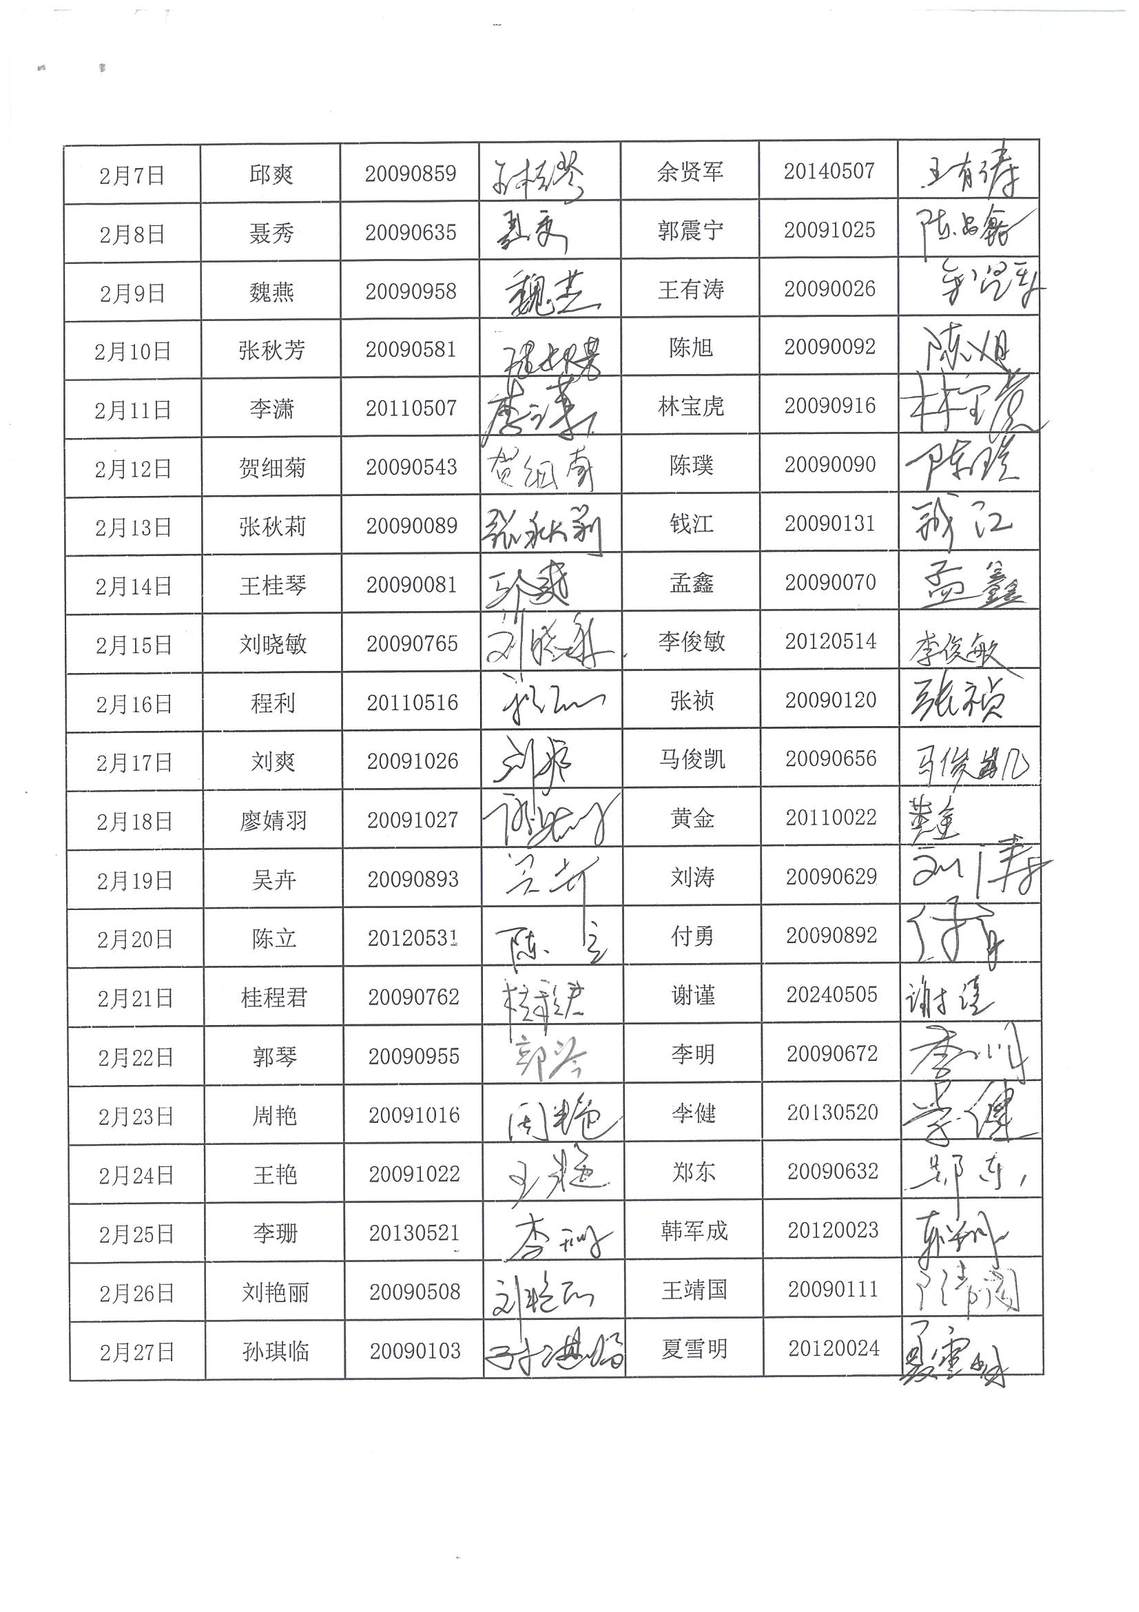 2月7日 邱爽 20090859 余贤军 20140507 王有涛
2月8日 聂秀 20090635 郭震宁 20091025
2月9日 魏燕 20090958 魏燕 王有涛 20090026
2月10日 张秋芳 20090581 陈旭 20090092 陈旭
2月11日 李潇 20110507 林宝虎 20090916 林宝虎
2月12日 贺细菊 20090543 贺细菊 陈璞 20090090 陈璞
2月13日 张秋莉 20090089 张秋莉 钱江 20090131 钱江
2月14日 王桂琴 20090081 孟鑫 20090070 孟鑫
2月15日 刘晓敏 20090765 刘晓敏 李俊敏 20120514 李俊敏
2月16日 程利 20110516 张祯 20090120 张祯
2月17日 刘爽 20091026 刘爽 马俊凯 20090656 马俊凯
2月18日 廖婧羽 20091027 黄金 20110022 黄金
2月19日 吴卉 20090893 吴卉 刘涛 20090629 刘涛
2月20日 陈立 20120531 陈立 付勇 20090892 付勇
2月21日 桂程君 20090762 桂程君 谢谨 20240505 谢谨
2月22日 郭琴 20090955 郭琴 李明 20090672 李明
2月23日 周艳 20091016 周艳 李健 20130520 李健
2月24日 王艳 20091022 王艳 郑东 20090632 郑东
2月25日 李珊 20130521 李珊 韩军成 20120023
2月26日 刘艳丽 20090508 刘艳丽 王靖国 20090111
2月27日 孙琪临 20090103 孙琪临 夏雪明 20120024 夏雪明